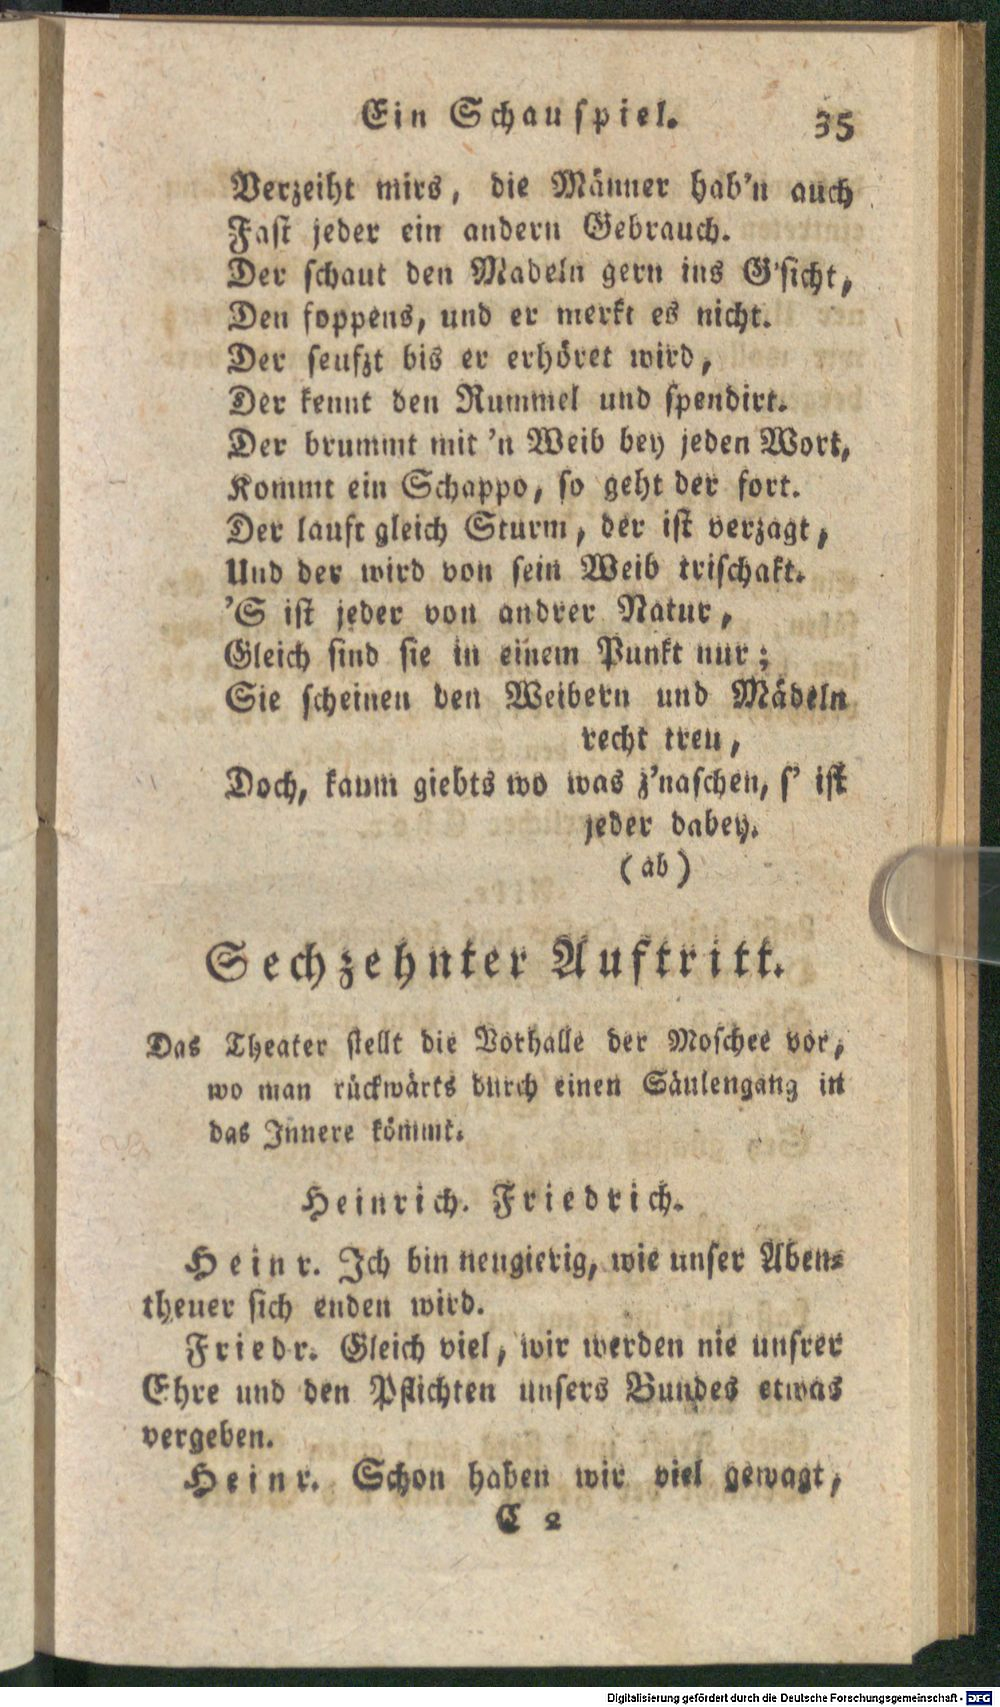 Ein Schauspiel. 35
Verzeiht mirs, die Männer hab'n auch
Fast jeder ein andern Gebrauch.
Der schaut den Madeln gern ins G'sicht,
Den foppens, und er merkt es nicht.
Der seufzt bis er erhöret wird,
Der kennt den Rummel und spendirt.
Der brummt mit 'n Weib bey jeden Wort,
Kommt ein Schappo, so geht der fort.
Der lauft gleich Sturm, der ist verzagt,
Und der wird von sein Weib trischakt.
'S ist jeder von andrer Natur,
Gleich sind sie in einem Punkt nur;
Sie scheinen den Weibern und Mädeln
recht treu,
Doch, kaum giebts wo was z'naschen, s' ist
jeder dabey.
(ab)
Sechzehnter Auftritt.
Das Theater stellt die Vorhalle der Moschee vor,
wo man rückwärts durch einen Säulengang in
das Innere kömmt.
Heinrich. Friedrich.
Heinr. Ich bin neugierig, wie unser Aben-
theuer sich enden wird.
Friedr. Gleich viel, wir werden nie unsrer
Ehre und den Pflichten unsers Bundes etwas
vergeben.
Heinr. Schon haben wir viel gewagt,
C 2
Digitalisierung gefördert durch die Deutsche Forschungsgemeinschaft - DFG